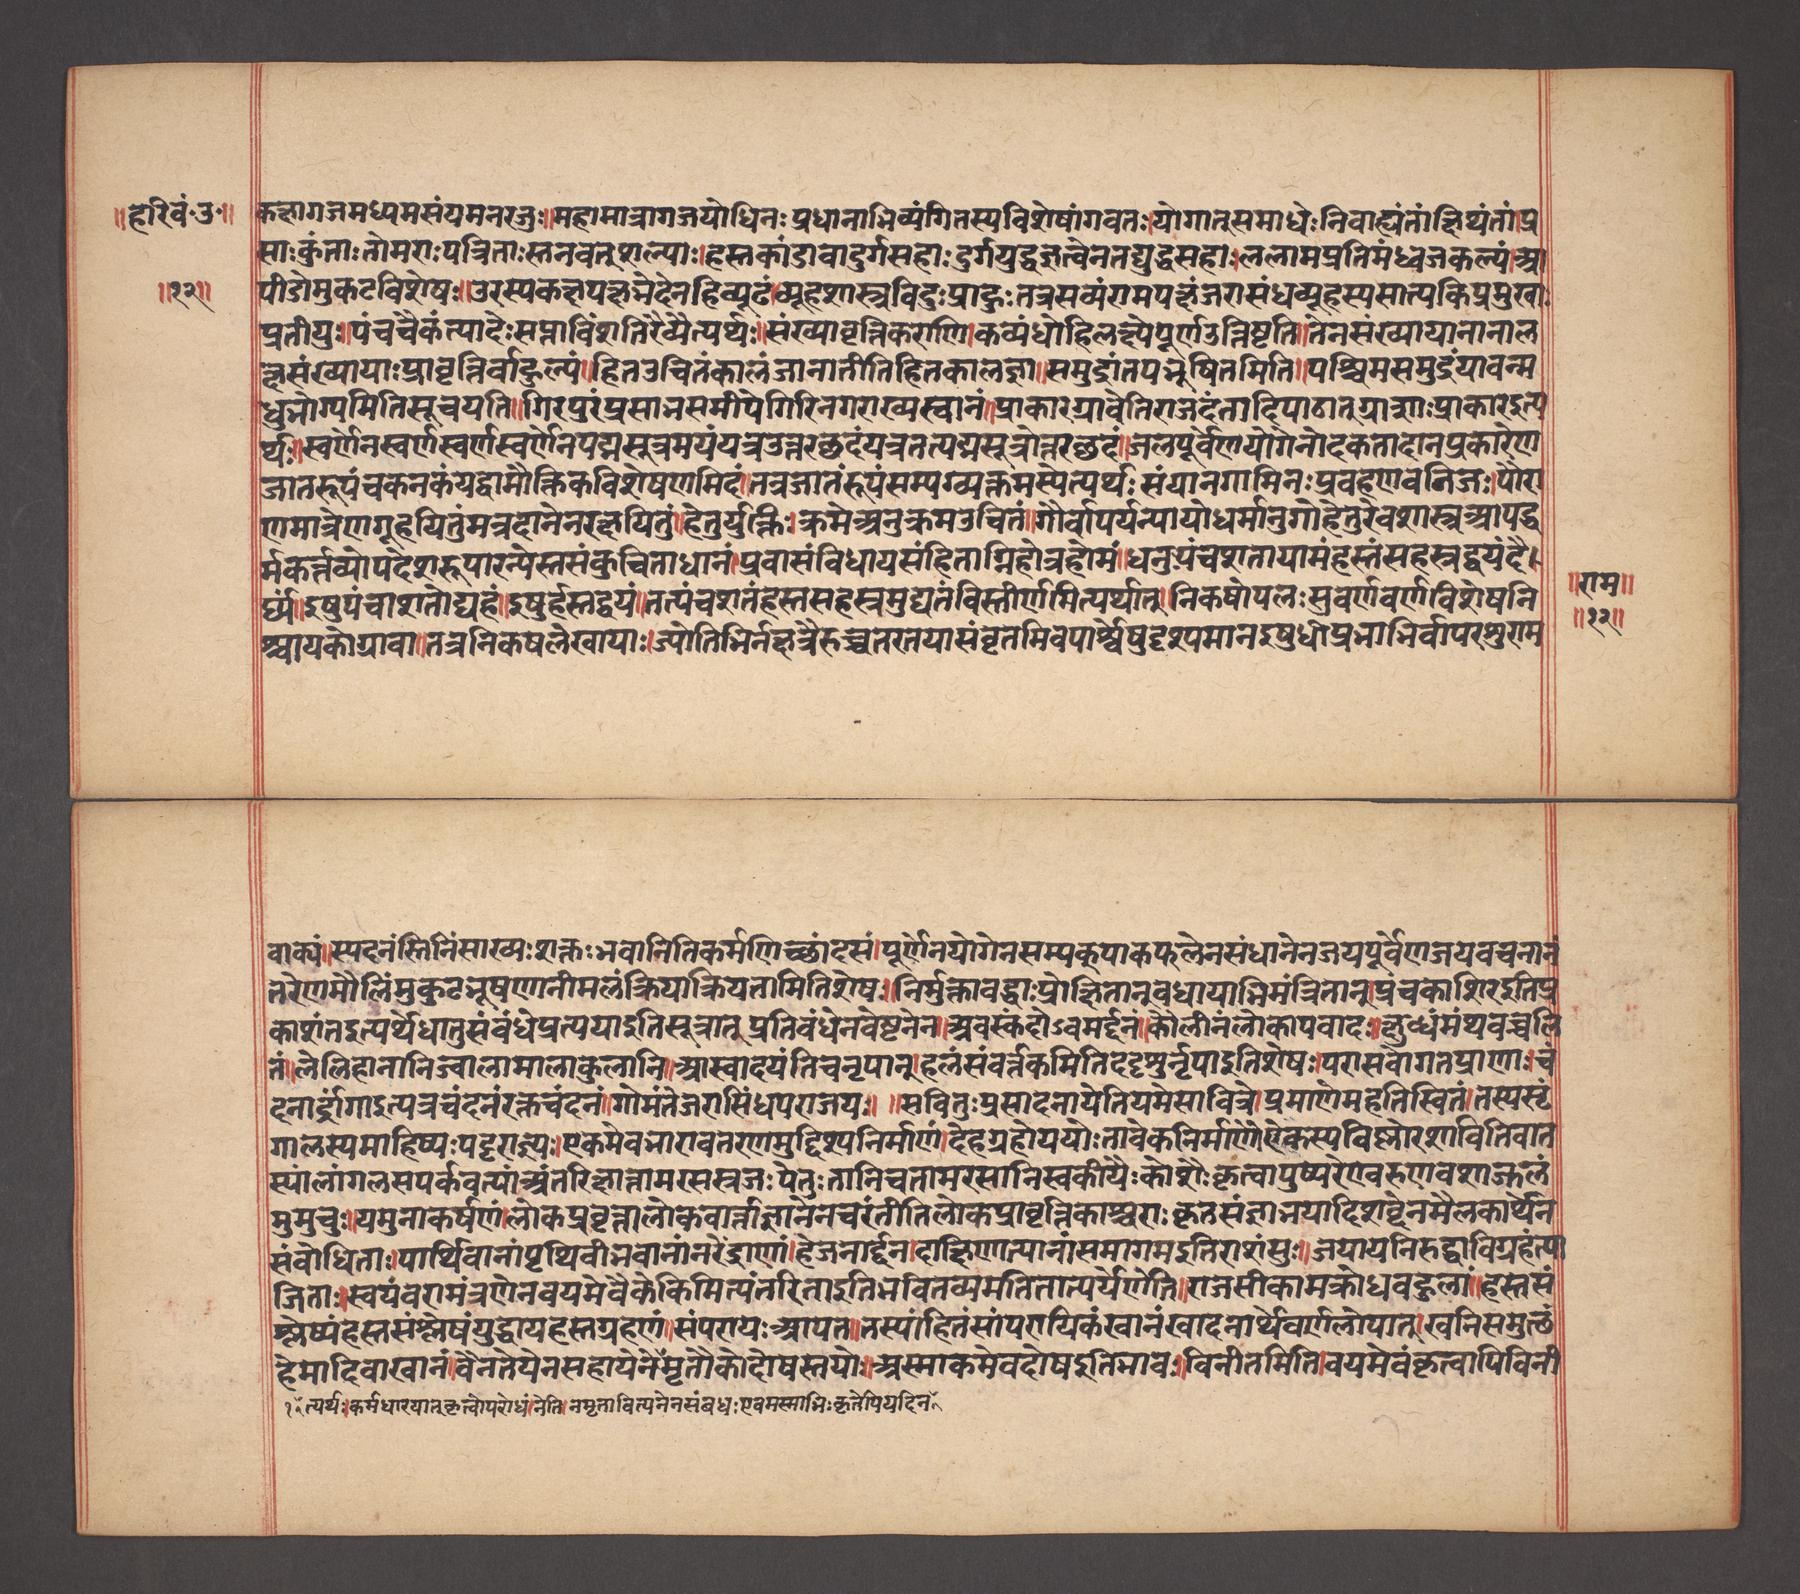 ॥हरिवं॰उ॰॥
॥१२॥
कक्षागजमध्यमसंयमनरज्जुः॥महामात्रागजयोधिनः प्रधानाभिव्यंगितस्यविशेषांगवतः।योगात्तुसमाधेः निवाह्यंतां।क्षिप्यंतां।प्र
साःकुंताःतोमराःपत्रिताःस्तनवतूशल्याः।हस्तकांडावादुर्गसहाः दुर्गयुद्धज्ञत्वेनतद्युद्धसहाः।ललामप्रतिमंध्वजकल्पं।आ
पीडोमुकटविशेषः॥उरस्यकक्षपक्षभेदेनहिव्यूढं।व्यूहशास्त्रविदुःप्राहुः तत्रसव्यंरामपक्षंजरासंधव्यूहस्यसात्यकिप्रमुखाः
प्रतीयुः।पंचचैकंत्यादेःसप्ताविंशतिरथ्यैत्यर्थः॥संख्यावृत्तिकराणि।कव्यंधोहिलक्ष्येपूर्णउत्तिष्टति।तेनसंख्यायानानाल
क्षसंख्यायाःप्रावृत्तिर्वाहुल्यं।हितउचितंकालंजानातीतिहितकालज्ञा॥समुद्रांतपभूषितमिति।पश्चिमसमुद्रंयावन्म
धुभोग्यमितिसूचयति॥गिरपुरंप्रसाभसमीपेगिरिनगराख्यस्थानं॥प्राकारग्रावेतिराजदंतादिपाठातग्रावाणःप्राकारइत्य
र्थः।स्वर्णेनस्वर्णस्वर्णस्वर्णेनपद्मसूत्रमयंयत्रउत्तरछदंयत्रतत्पद्मसूत्रोत्तरछदं।जलपूर्वेणयोगेनोदकतादानप्रकारेण
जातरूपंचकनकंयद्वामौक्तिकविशेषणमिदं।तत्रजातंरूपंसम्यग्व्यक्तमस्येत्यर्थः संयानगामिनः प्रवहणवनिजः।पौरा
णमात्रेणगूहयितुंमत्रदानेनरक्षयितुं।हेतुर्युक्तिः।क्रमेअनुक्रमउचितं।गौर्वापर्यन्यायोधर्मानुगोहेतुरेवशास्त्रआपद्ध
र्मकर्त्तव्योपदेशरूपारन्येस्तसंकुचिताधानं।प्रवासंविधायसंहिताग्निहोत्रहोमं।धनुपंचशतायामंहस्तंसहस्त्रद्वयंदै।
र्घ्यं।इषुपंचाशतोद्यहं।इषुर्हस्तद्वयं।तत्पंचशतंहस्तसहस्त्रमुद्यतंविस्तीर्णमित्यर्थात्।निकषोपलः सुवर्णवर्णविशेषनि
श्चायकोग्रावा।तत्रनिकषलेखायाः।ज्योतिभिर्नक्षत्रैरुच्चतरतयासंवृतमिवपार्श्वेषुदृश्यमानइषुधीप्रभाभिर्वापरशुराम
॥राम॥
॥१२॥
वाक्यं।स्पदनंस्तिनिंसाख्यःशक्तःभवानितिकर्मणिच्छांदसं।पूर्णेनयोगेनसम्पक्पाकफलेनसंधानेनजयपूर्वेणजयवचनानं
तरेणमौलिंमुकुटभूषणानीमलंक्रियाक्रियतामितिशेषः।निर्मुक्तावद्धाःप्रोक्षितानुवधायाभिमंत्रितान्।प्रंचकाशिरइतिप्र
काशंतइत्यर्थेधातुसंबंधेप्रत्ययाइतिसूत्रात् प्रतिवंधेनवेष्टनेन।अवस्कंदोऽवमर्द्दनं।कौलीनंलोकापवादः।क्षुब्धंमंथवच्चलि
तं।लेलिहानानिज्वालामालाकुलानि।आस्वादयंतिचनृपान्।हलंसंवर्त्तकमितिददृशुर्नृपाइतिशेषः।परासवोगतप्राणाः।चं
दनार्द्रांगाइत्यत्रचंदनंरक्तचंदनं।गोमंतेजरासिंधपराजयः॥ ॥सवितुःप्रसादनायेतियमेसावित्रे।प्रमाणेमहतिस्थितं।तस्यसृं
गालस्यमाहिष्यःपट्टराज्ञ्यः।एकमेवभारावतरणमुद्दिश्यनिर्माणं।देहग्रहोययोःतावेकनिर्माणौएकस्यविष्णोरशावितिवात
स्यांलांगलसपर्कवत्यां।अंतरिक्षात्तामरसस्त्रजःपेतुःतानिचतामरसानिस्वकीयैःकोशैःकृत्वापुष्परेणवरुणवशाज्जलं
मुमुचुः।यमुनाकर्षणं।लोकप्रवृत्तालोकवार्त्ताज्ञानेनचरंतीतिलोकप्रावृत्तिकाश्चराःकृतसंज्ञाभयादिशव्देनमैलकार्थेन
संवोधिताः।पार्थिवानांपृथिवीभवानांनरेंद्राणां।हेजनार्द्दन।दाक्षिणात्यानांसमागमइतिराशंसुः।जयायनिरुद्धाविग्रहंत्या
जिताः।स्वयंवरामंत्रणेनवयमेवैकेकिमित्यंतरिताइतिभवितव्यमतितात्पर्येणेति।राजसीकामक्रोधवहुलां।हस्तसं
श्लेष्यंहस्तसंश्लेषंयुद्धायहस्तग्रहणं।संपरायःआपत्।तस्यांहितंसांपरायिकंखानंखादनार्थेवर्णलोपात्।खनिसमुत्थं
हेमादिवाखानं।वैनतेयेनसहायेनेमृतौकोदोषस्तयोः।अस्माकमेवदोषइतिभावः।विनीतमिति।वयमेवंकृत्वापिविनी
त्यर्थः।कर्मधारयात्कृत्वोपरोधं।नेति।नमृतावित्यनेनसंबंधःएवमस्माभिःकृतेपियदिन